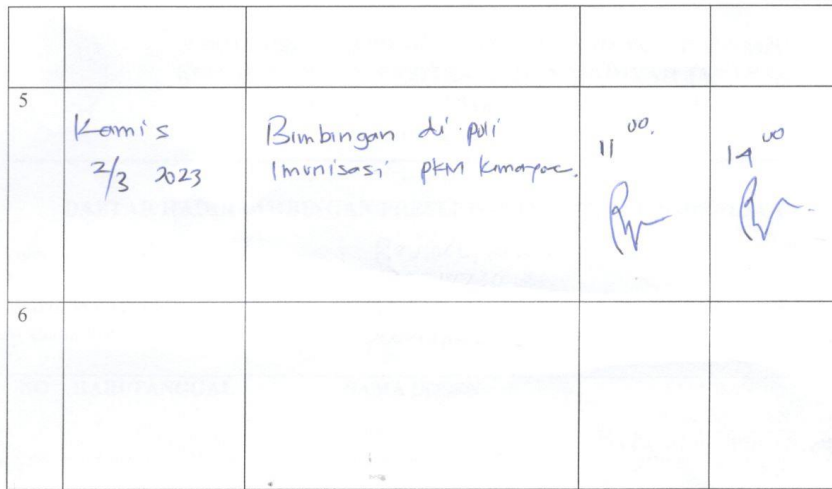 5
Kamis
2/3 2023
Bimbingan di poli
Imunisasi PKM
11 00.
14 00
6